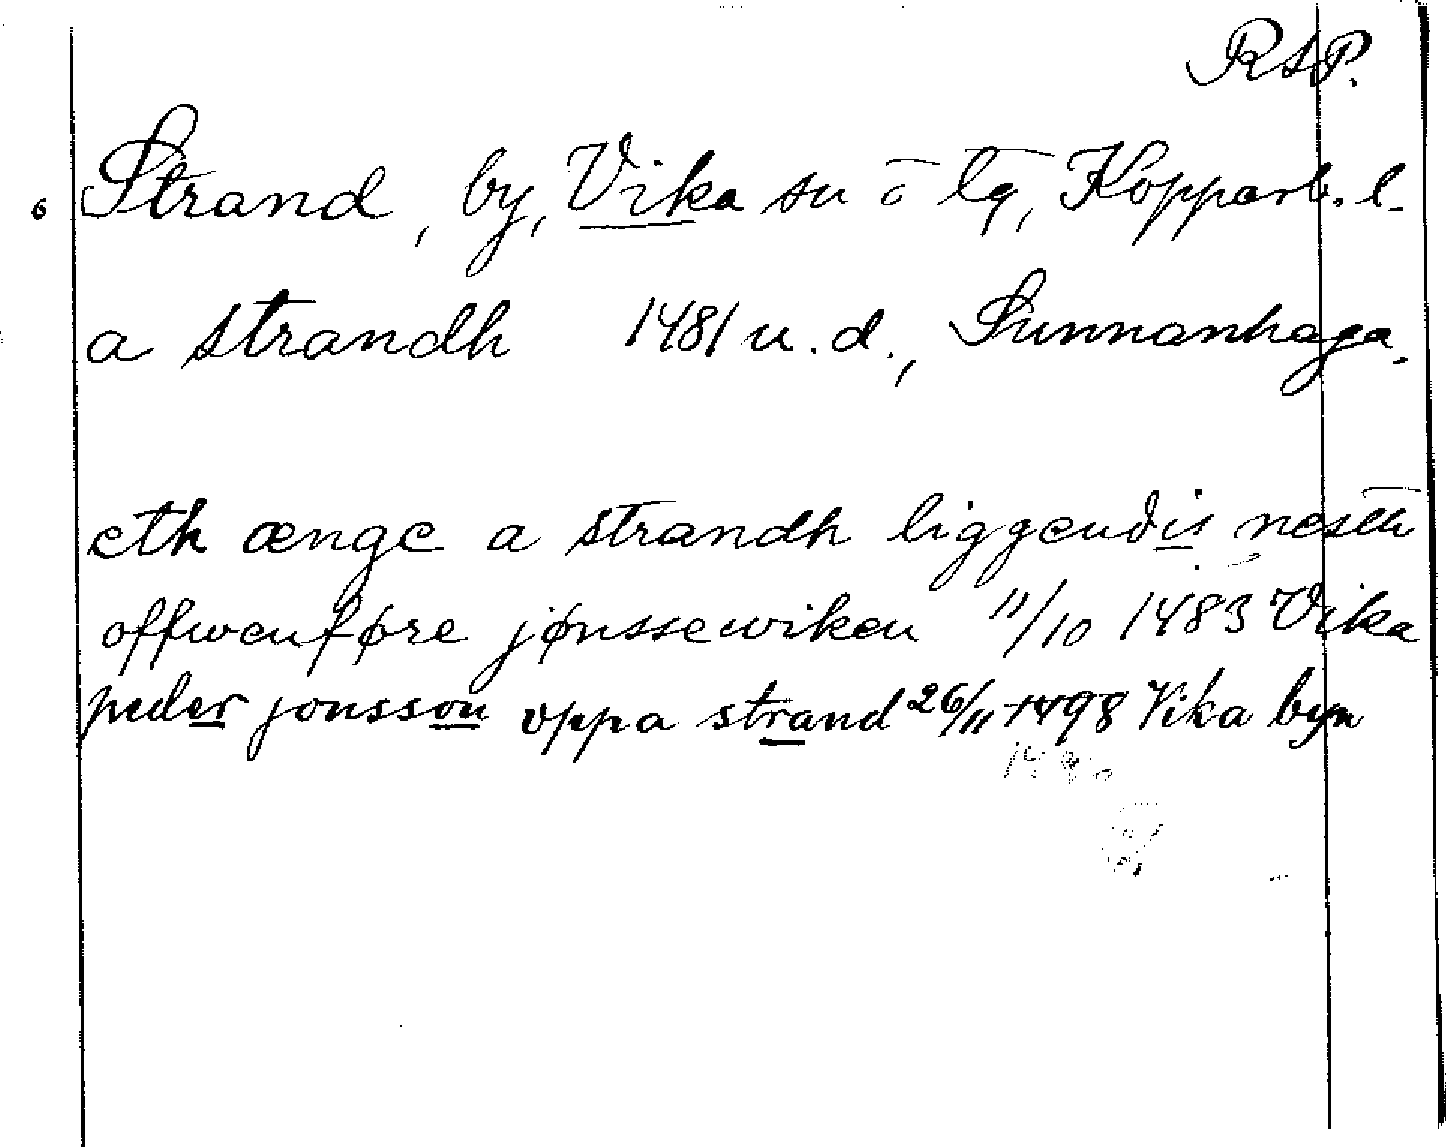 RAP.
6 Strand, by, Vika sn o tg, Kopparb. l.
a strandh 1481 u. d., Sunnanhaga.
eth ænge a strandh liggendis nesth
offwenføre jønssewiken 11/10 1483 Vika
peder jonsson vppa strand 26/11 1498 Vika byn